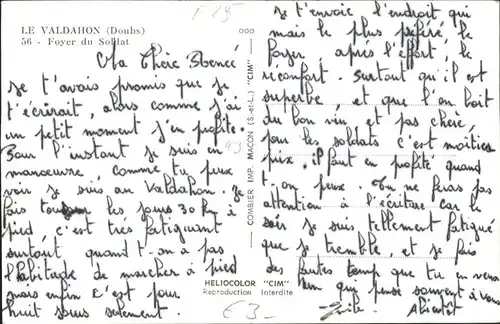 LE VALDAHON (Doubs)
56 - Foyer du Soldat
Ma Chère
je t'avais promis que je
t'écrirait, alors comme j'ai
un petit moment j'en profite.
Pour l'instant je suis en
manoeuvre, comme tu peux
voir je suis au Valdahon. Je
fais les jours 30 km à
pied, c'est très fatiguant
surtout quand t-on a pas
l'habitude de marcher à pied
mais enfin c'est pour
huit jours seulement.
COMBIER IMP. MACON (S.-&-L.) "CIM"
HELIOCOLOR "CIM"
Reproduction Interdite
je t'envoie l'endroit qui
mais le plus préféré, le
foyer, après l'effort, le
réconfort. Surtout qu'il est
superbe, et que l'on boit
du bon vin et pas cher,
pour les soldats c'est moitier
prix. il faut en profité quand
t-on peux. Tu ne feras pas
attention à l'écriture car le
soir je suis tellement fatigué
que je tremble, et je fais
des fautes
qui pense souvent à vous
Alientôt
€3-